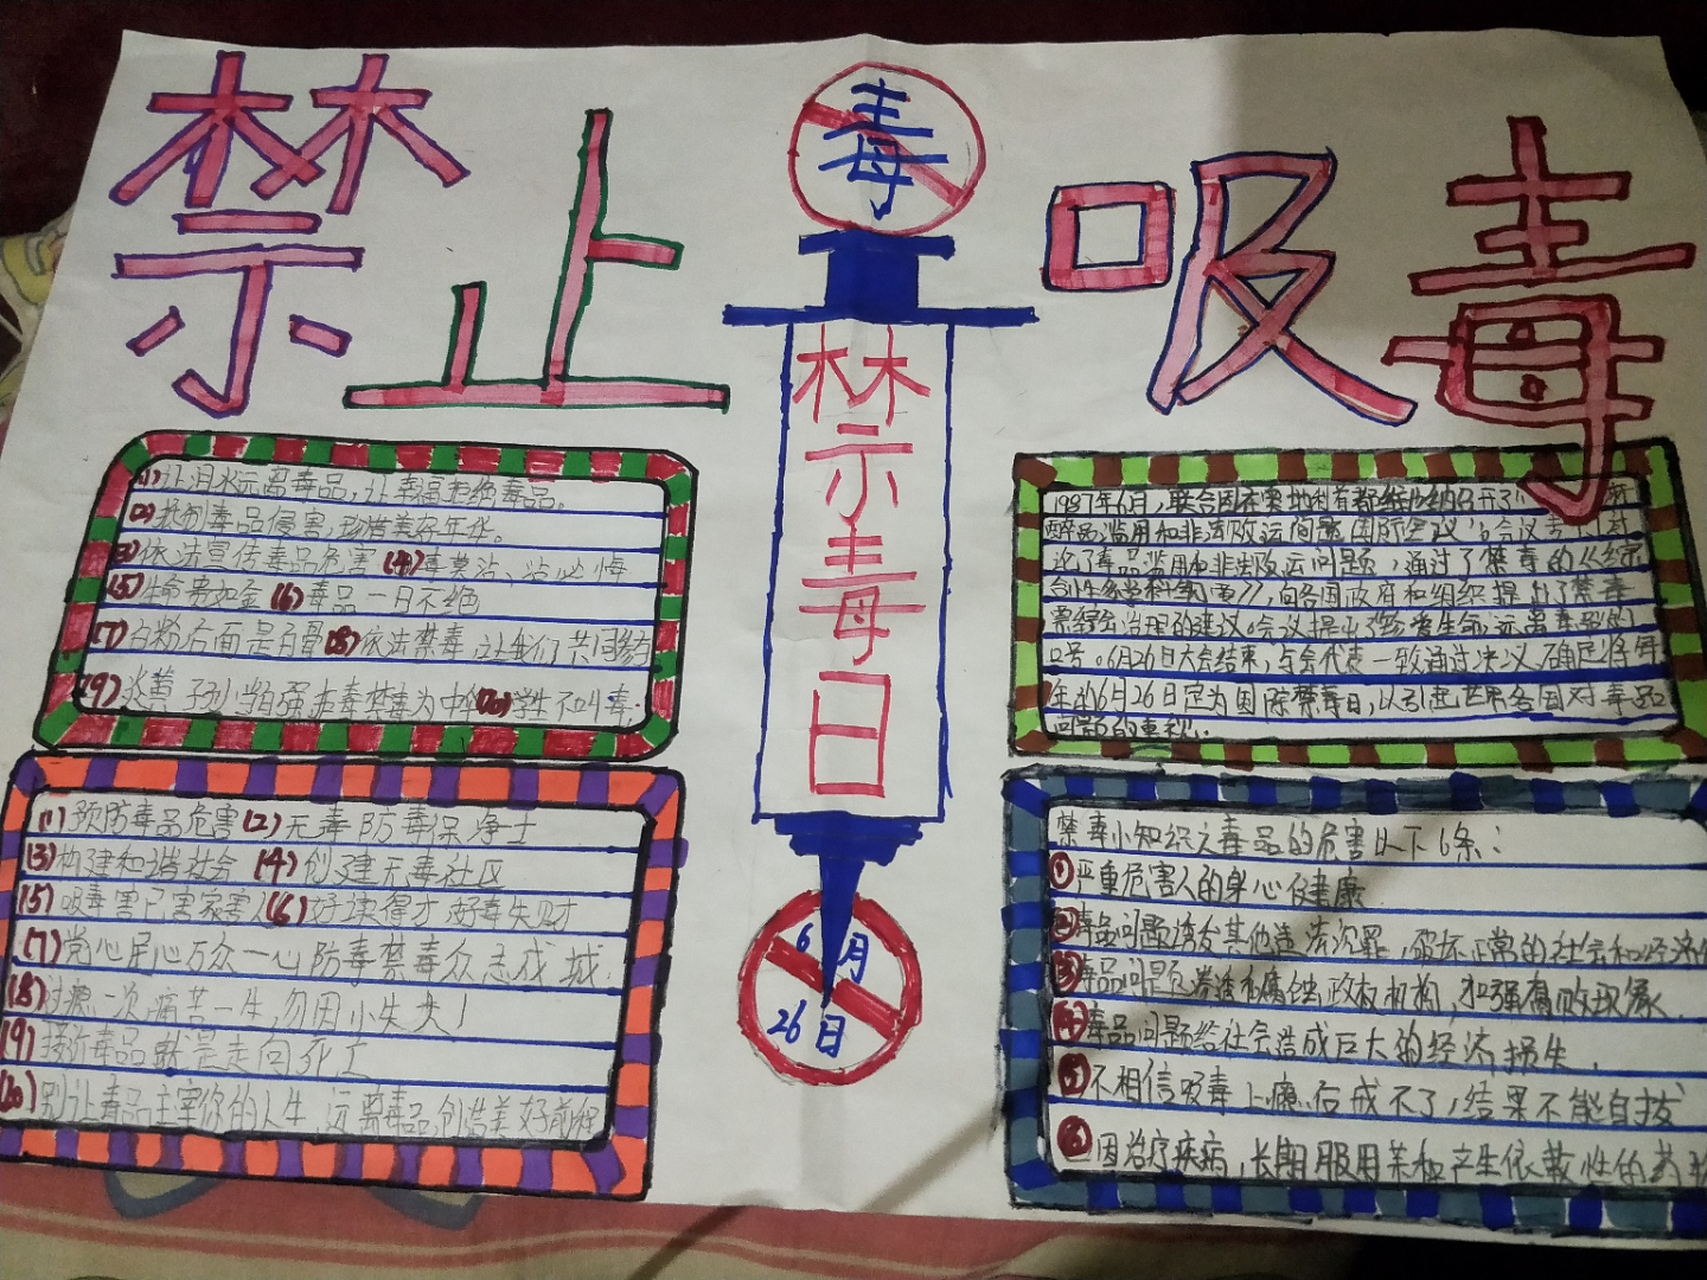 禁止吸毒
毒
禁毒日
6月
26日
(1)让泪水远离毒品,让幸福拒绝毒品。
(2)抵制毒品侵害,珍惜美好年华。
(3)依法宣传毒品危害(4)毒莫沾、沾必悔
(5)生命贵如金(6)毒品一日不绝
(7)白粉后面是白骨(8)依法禁毒,让我们共同参与
(9)炎黄子孙当自强拒毒禁毒为中华(10)学生不叫毒
1987年6月,联合国在奥地利首都维也纳召开了
醉品滥用和非法贩运问题国际会议
论了毒品滥用和非法贩运问题,通过了禁毒的《综
,向各国政府和组织提出了禁毒
治理的建议。会议提出了珍爱生命远离毒品的
口号。6月26日大会结束,与会代表一致通过决议,确定将每
年的6月26日定为国际禁毒日,以引起世界各国对毒品
问题的重视.
(1)预防毒品危害(2)无毒防毒保净土
(3)构建和谐社会 (4)创建无毒社区
(5)吸毒害已害家害人(6)好读得才 好毒失财
(7)党心民心万众一心防毒禁毒众志成城.
(8)过瘾一次痛苦一生,勿因小失大!
(9)接近毒品就是走向死亡
(10)别让毒品主宰你的人生,远离毒品,创造美好前程
禁毒小知识之毒品的危害以下6条:
①严重危害人的身心健康
②毒品问题诱发其他违法犯罪,破坏正常的社会和经济
③毒品问题渗透和腐蚀政权机构,加强腐败现象.
④毒品问题给社会造成巨大的经济损失.
⑤不相信吸毒上瘾后戒不了,结果不能自拔
⑥因治疗疾病,长期服用某种产生依赖性的药